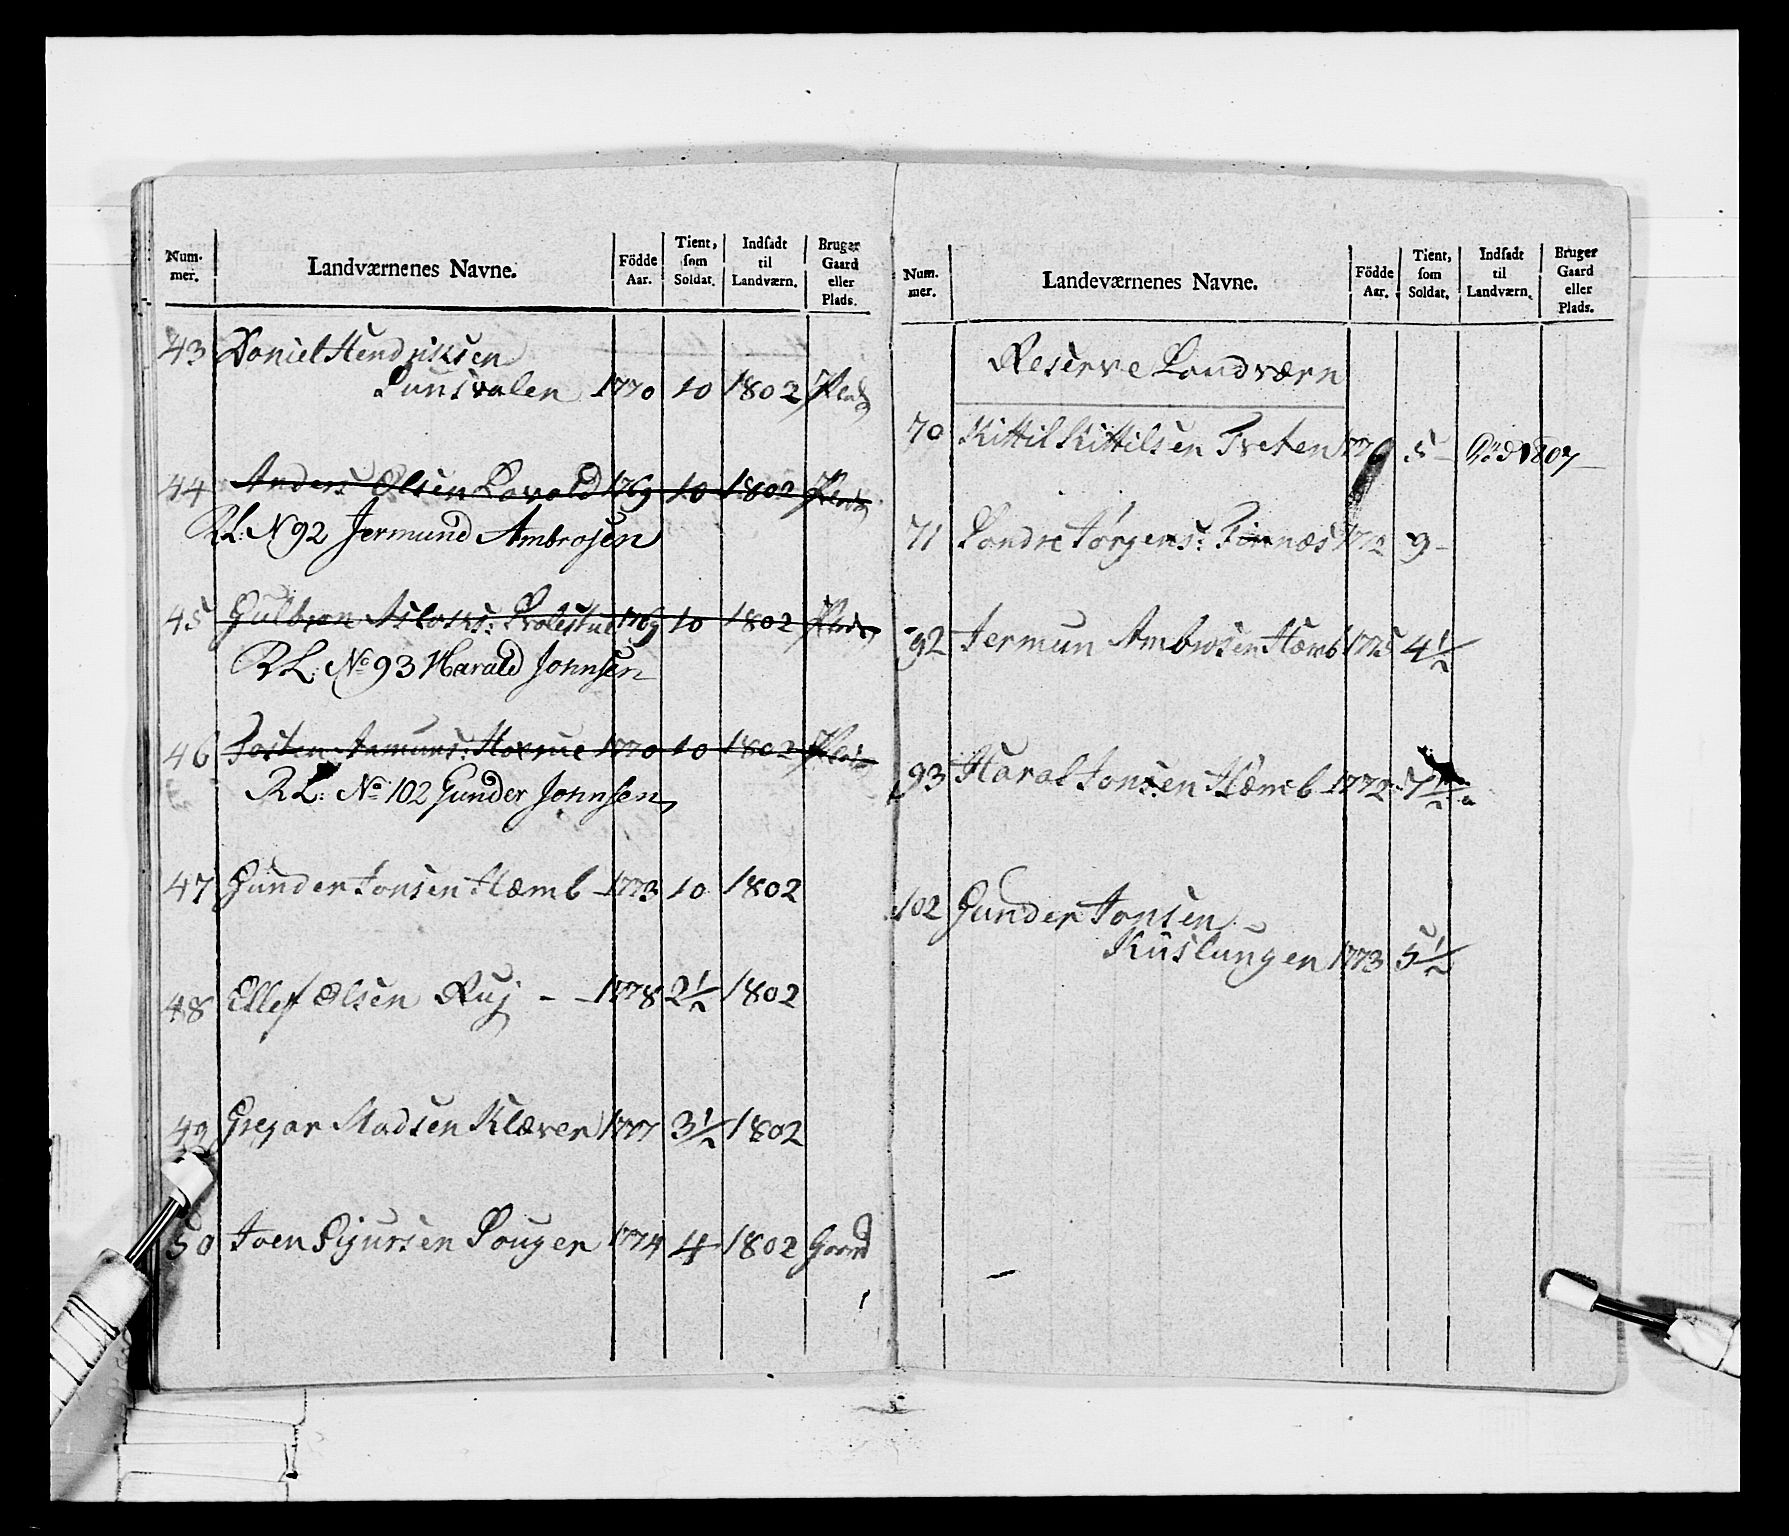 Num-
mer.
Landværnenes Navne.
Födde
Aar.
Tient,
som
Soldat.
Indsadt
til
Landværn.
Bruger
Gaard
eller
Plads.
43 Daniel Hendriksen
Lunsvalen 1770 10 1802 Plads
44 Anders Olsen Lavold 1769 10 1802 Plads
RL: N 92 Jermund Ambrosen
45 Gulbran Aslaks: 1769 10 1802 Plads
RL: No 93 Harald Johnsen
46 Tosten Amuns: 1770 10 1802 Plads
RL: No 102 Gunder Johnsen
47 Gunder Jonsen Hæmb - 1773 10 1802
48 Ellef Olsen Ruj - - 1778 2½ 1802
49 Gregar Madsen Klæver 1777 3½ 1802
50 Joen Sigursen Rougen 1774 4 1802 Gaard
Num.
mer.
Landeværnenes Navne.
Födde
Aar.
Tient,
som
Soldat.
Indsadt
til
Landværn.
Bruger
Gaard
eller
Plads.
Reserve Landværn
70 Kittil Kittilsen Treten 5 - Död 1807
71 Sondre Jørgens: Finnæs 1772 9 -
92 Jermun Ambrosen Hæmb 1775 4½
93 Haral Jonsen Hæmb - 1772 - 7½
102 Gunder Jonsen
Kuslungen 1773 5½